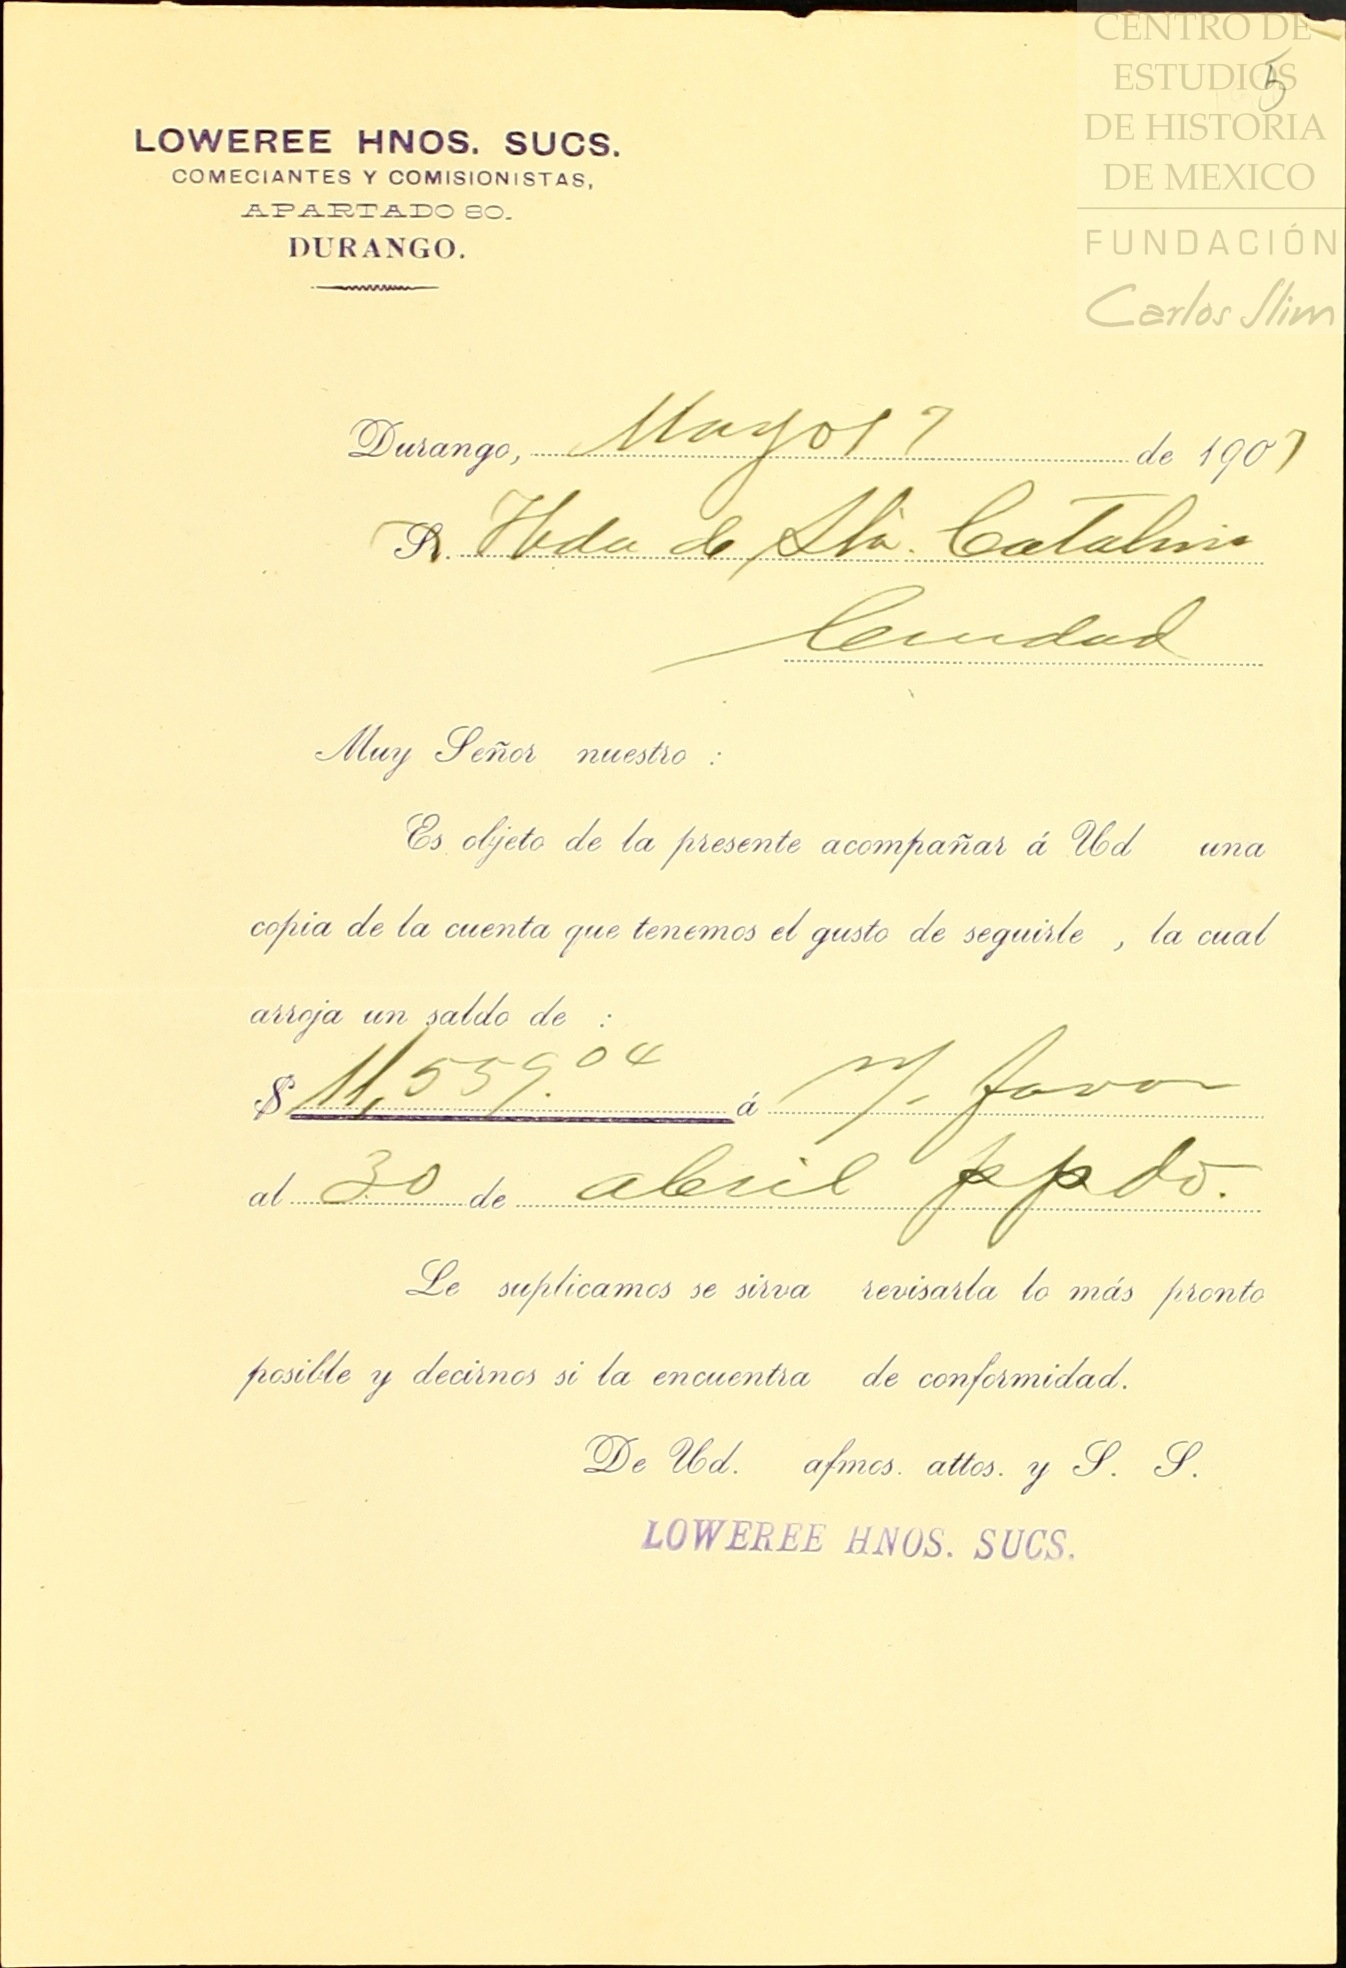 CENTRO DE
ESTUDIOS
DE HISTORIA
DE MEXICO
FUNDACIÓN
Carlos Slim
5
LOWEREE HNOS. SUCS.
COMECIANTES Y COMISIONISTAS,
APARTADO 80.
DURANGO.
Durango, Mayo 17 de 1907
Sr. Hda de Sta. Catalina
Ciudad
Muy Señor nuestro :
Es objeto de la presente acompañar á Ud una
copia de la cuenta que tenemos el gusto de seguirle , la cual
arroja un saldo de :
$ 11,559.04 á n/. favor
al 30 de abril ppdo.
Le suplicamos se sirva revisarla lo más pronto
posible y decirnos si la encuentra de conformidad.
De Ud. afmos. attos. y S. S.
LOWEREE HNOS. SUCS.